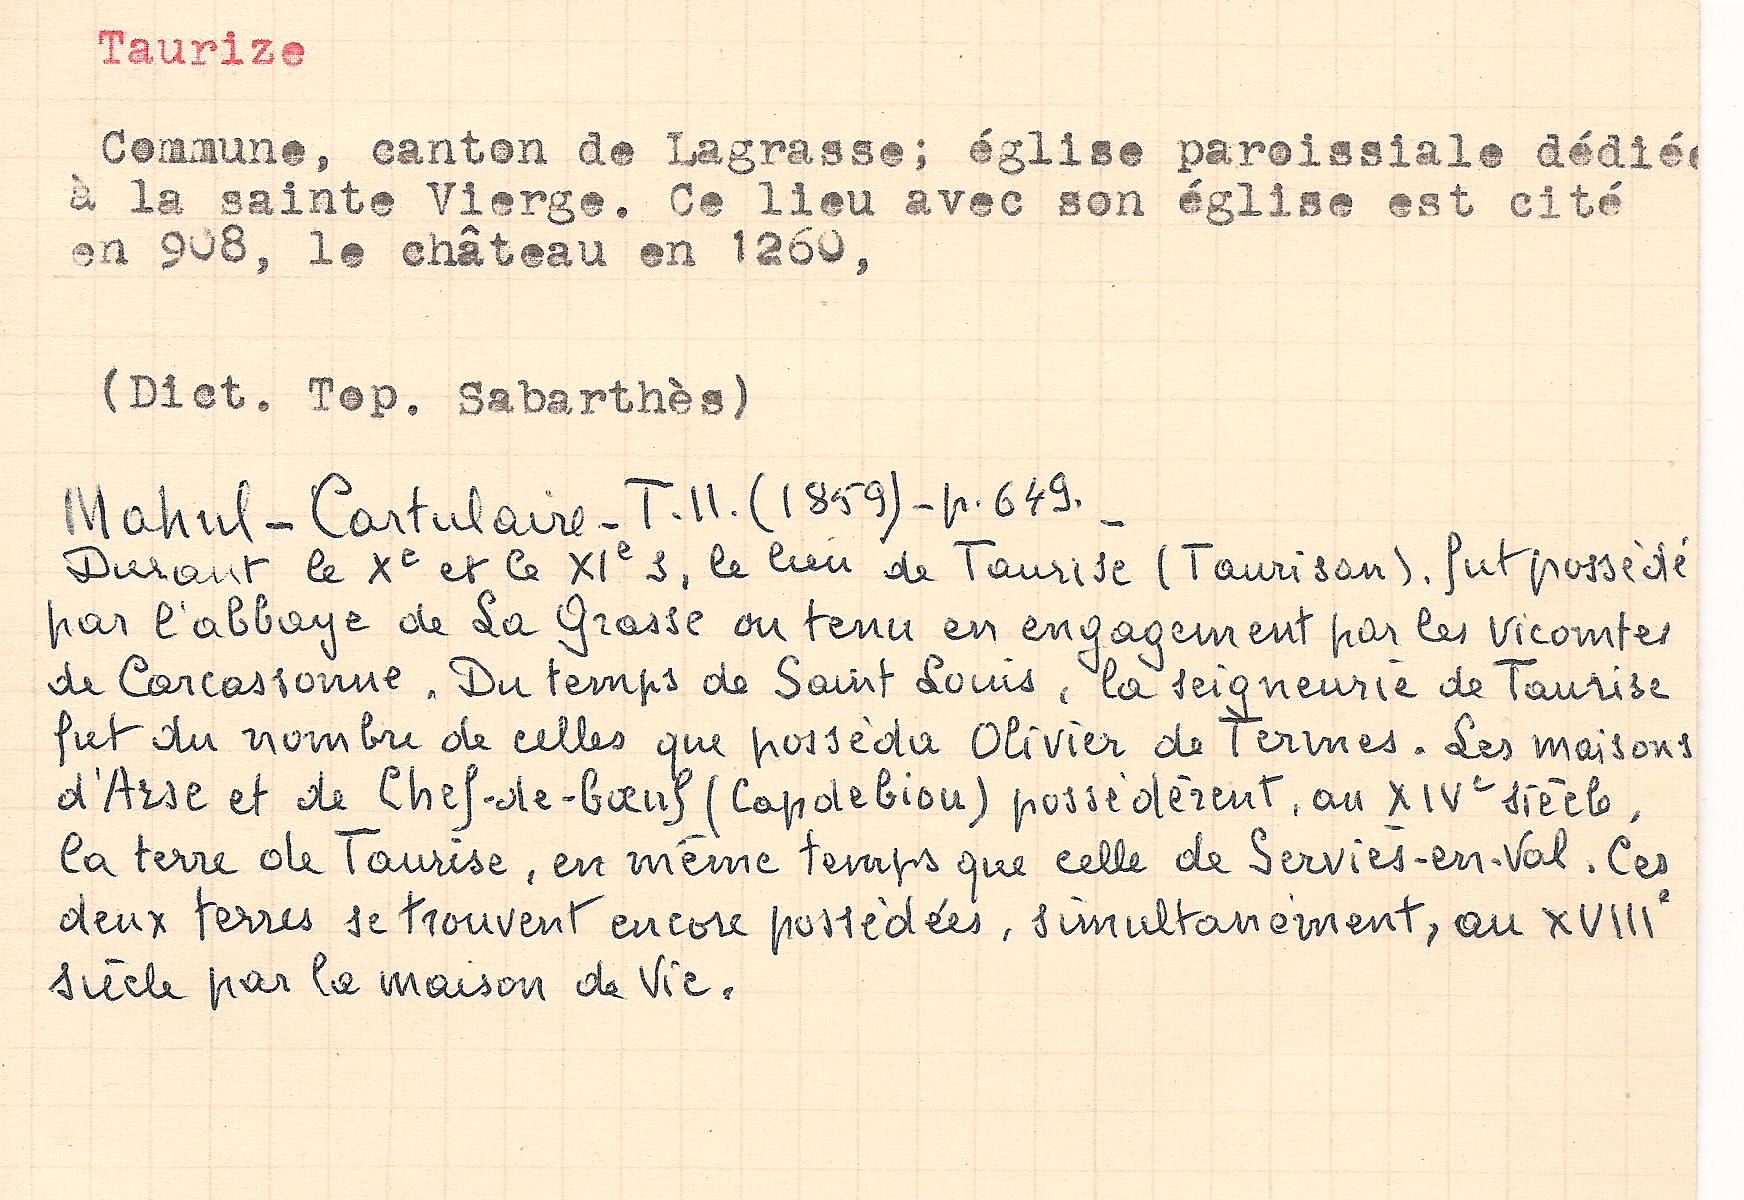 Taurize
Commune, canton de Lagrasse; église paroissiale dédiée
à la sainte Vierge. Ce lieu avec son église est cité
en 908, le château en 1260,
(Dict. Top. Sabarthès)
Mahul - Cartulaire - T.II. (1859) - p. 649. -
Durant le Xe et le XIe s, le lieu de Taurise (Taurisan). fut possèdé
par l'abbaye de La Grasse ou tenu en engagement par les vicomtes
de Carcassonne. Du temps de Saint Louis, la seigneurie de Taurise
fut du nombre de celles que posséda Olivier de Termes. Les maisons
d'Arse et de Chef-de-bœuf (Capdebiou) possédèrent, au XIVe siècle,
la terre de Taurise, en même temps que celle de Serviès-en-Val. Ces
deux terres se trouvent encore possédées, simultanément, au XVIIIe
siècle par la maison de Vic.